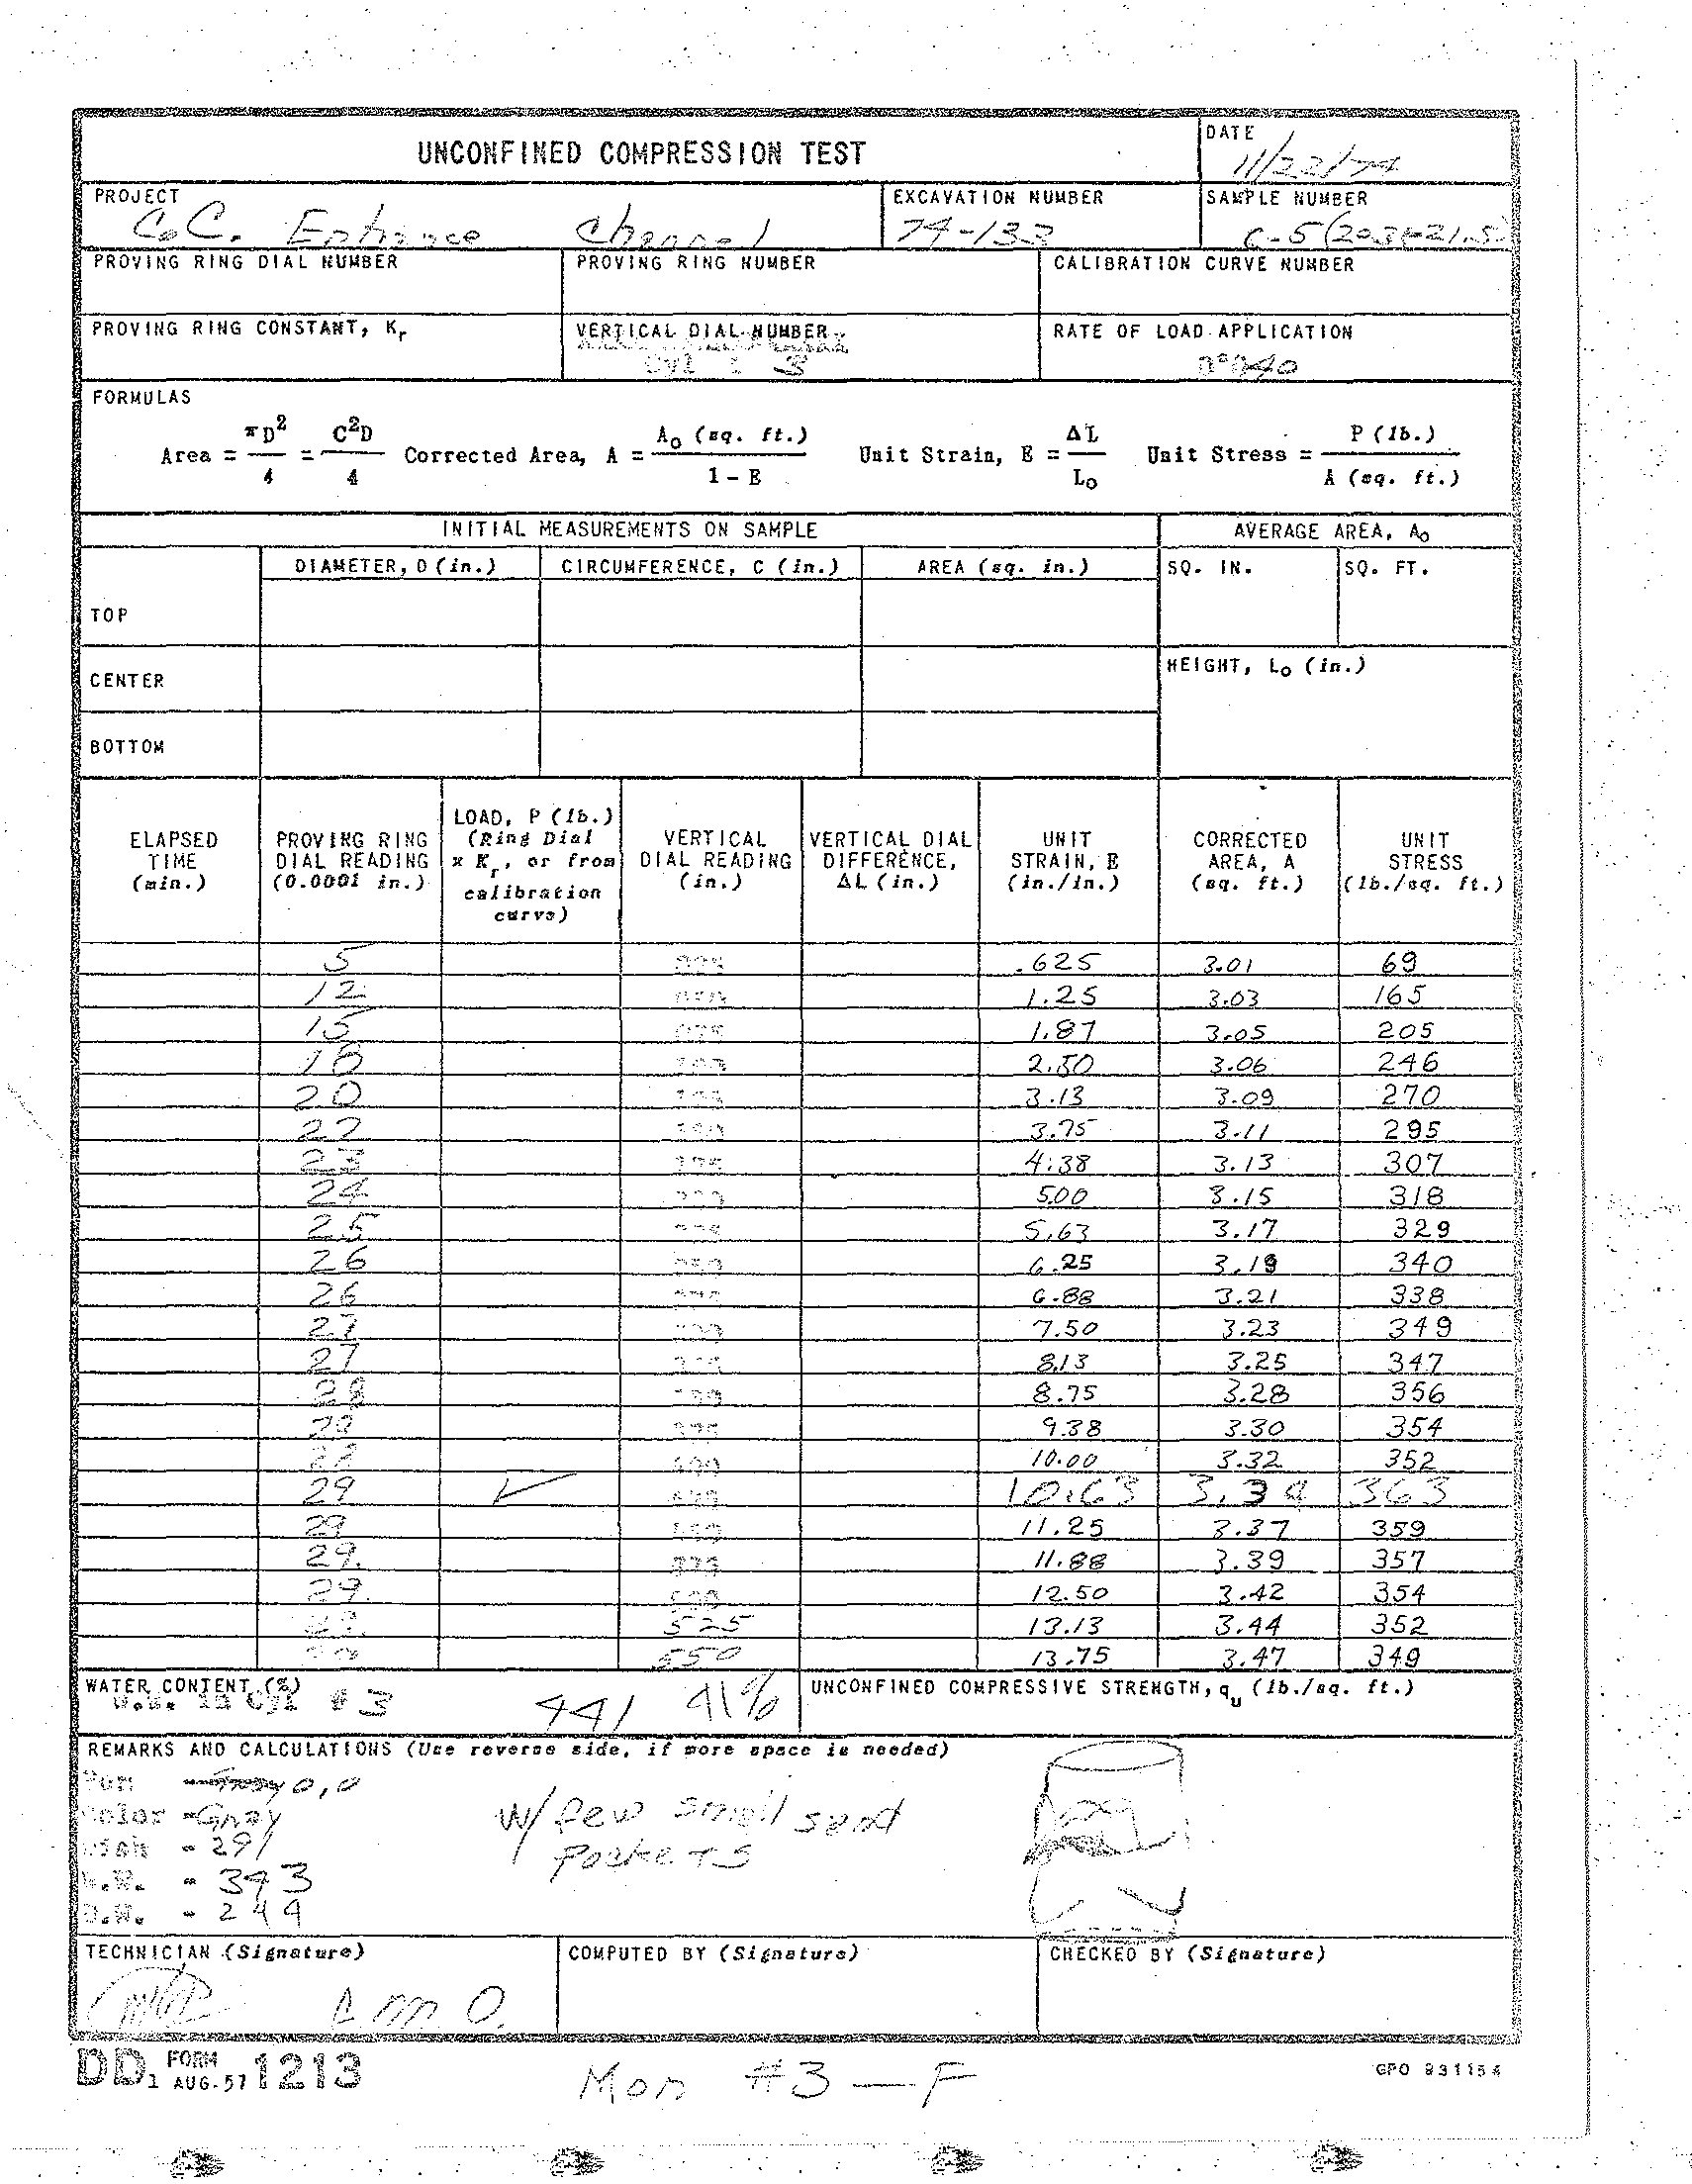 UNCONFINED COMPRESSION TEST
DATE
11/22/74
PROJECT
C.C. Entrance Channel
EXCAVATION NUMBER
74-133
SAMPLE NUMBER
C-5 (20.3-21.5)
PROVING RING DIAL NUMBER
PROVING RING NUMBER
CALIBRATION CURVE NUMBER
PROVING RING CONSTANT, Kr
VERTICAL DIAL NUMBER
Cyl 3
RATE OF LOAD APPLICATION
FORMULAS
Area = πD²/4 = C²D/4 Corrected Area, A = A₀ (sq. ft.)/1 - E Unit Strain, E = ΔL/L₀ Unit Stress = P (lb.)/A (sq. ft.)
INITIAL MEASUREMENTS ON SAMPLE
AVERAGE AREA, A₀
DIAMETER, D (in.) CIRCUMFERENCE, C (in.) AREA (sq. in.) SQ. IN. SQ. FT.
TOP
CENTER
HEIGHT, L₀ (in.)
BOTTOM
ELAPSED TIME (min.)
PROVING RING DIAL READING (0.0001 in.)
LOAD, P (lb.) (Ring Dial x Kr, or from calibration curve)
VERTICAL DIAL READING (in.)
VERTICAL DIAL DIFFERENCE, ΔL (in.)
UNIT STRAIN, E (in./in.)
CORRECTED AREA, A (sq. ft.)
UNIT STRESS (lb./sq. ft.)
5 .625 3.01 69
12 1.25 3.03 165
15 1.87 3.05 205
18 2.50 3.06 246
20 3.13 3.09 270
22 3.75 3.11 295
23 4.38 3.13 307
24 5.00 3.15 318
25 5.63 3.17 329
26 6.25 3.19 340
26 6.88 3.21 338
27 7.50 3.23 349
27 8.13 3.25 347
28 8.75 3.28 356
28 9.38 3.30 354
28 400 10.00 3.32 352
29 ✓ 10.63 3.34 363
29 11.25 3.37 359
29. 11.88 3.39 357
29. 500 12.50 3.42 354
29. 525 13.13 3.44 352
550 13.75 3.47 349
WATER CONTENT (%)
W.W. in Cyl #3 441 41%
UNCONFINED COMPRESSIVE STRENGTH, qu (lb./sq. ft.)
REMARKS AND CALCULATIONS (Use reverse side, if more space is needed)
0,0
Color - Gray
W/ few small sand
pockets
Dish - 291
W.W. - 393
D.W. - 249
TECHNICIAN (Signature)
L m O.
COMPUTED BY (Signature)
CHECKED BY (Signature)
DD FORM 1 AUG. 57 1213
Mon #3 — F
GPO 931154